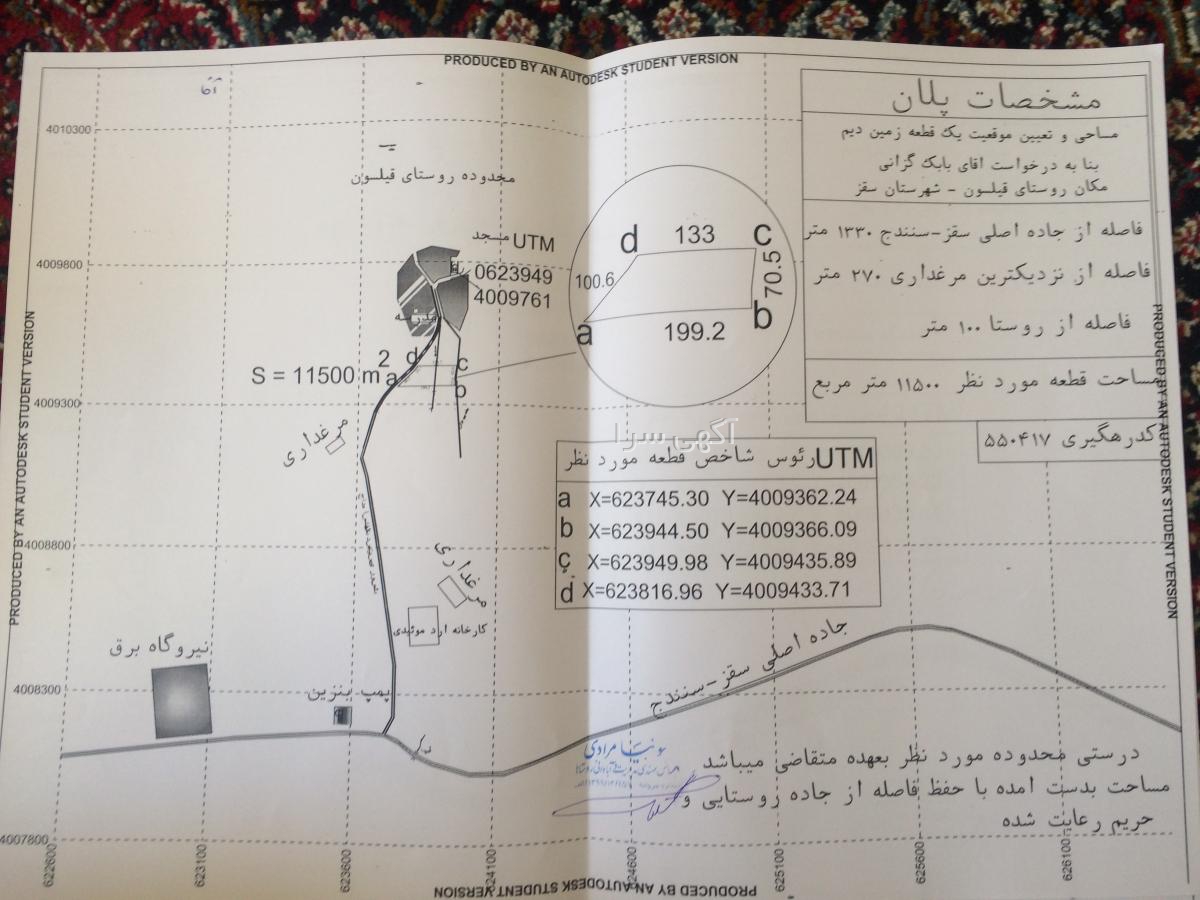 PRODUCED BY AN AUTODESK STUDENT VERSION
مشخصات پلان
مساحی و تعیین موقعیت یک قطعه زمین دیم
بنا به درخواست اقای بابک گزانی
مکان روستای قیلسون - شهرستان سقز
فاصله از جاده اصلی سقز-سنندج ۱۳۳۰ متر
فاصله از نزدیکترین مرغداری ۲۷۰ متر
فاصله از روستا ۱۰۰ متر
مساحت قطعه مورد نظر ۱۱۵۰۰ متر مربع
کدرهگیری ۵۵۰۴۱۷
4010300
محدوده روستای قیلسون
مسجد UTM
0623949
4009761
4009800
d 133 c
100.6
70.5
a 199.2 b
مدرسه
d c
a b
S = 11500 m2
4009300
مرغداری
آگهی سرا
UTM رئوس شاخص قطعه مورد نظر
a X=623745.30 Y=4009362.24
b X=623944.50 Y=4009366.09
c X=623949.98 Y=4009435.89
d X=623816.96 Y=4009433.71
4008800
مرغداری
کارخانه ارد موئیدی
نیروگاه برق
جاده اصلی سقز-سنندج
4008300
پمپ بنزین
درستی محدوده مورد نظر بعهده متقاضی میباشد
مساحت بدست امده با حفظ فاصله از جاده روستایی و
حریم رعایت شده
سونیا مرادی
4007800
622600
623100
623600
624100
624600
625100
625600
626100
PRODUCED BY AN AUTODESK STUDENT VERSION
PRODUCED BY AN AUTODESK STUDENT VERSION
PRODUCED BY AN AUTODESK STUDENT VERSION